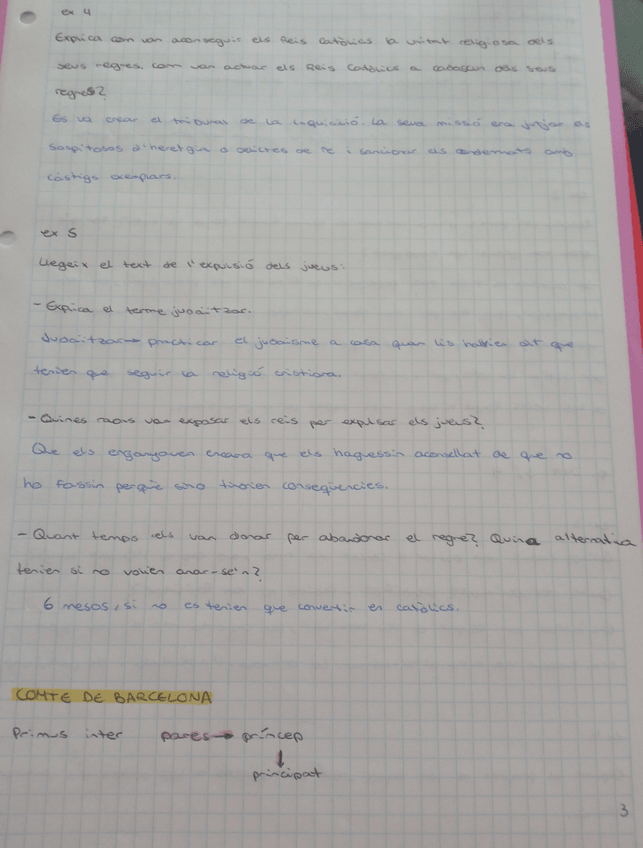 ex 4
Explica com van aconseguir els Reis Catòlics la unitat religiosa dels
seus regnes. com van actuar els Reis Catòlics a cadascun dels seus
regnes?
Es va crear el tribunal de la inquisició. La seva missió era jutjar als
sospitosos d'heretgia o delictes de fe i sancionar els condemnats amb
càstigs exemplars.
ex 5
Llegeix el text de l'expulsió dels jueus:
- Explica el terme judaitzar.
Judaitzar → practicar el judaisme a casa quan lis havien dit que
tenien que seguir la religió cristiana.
- Quines raons van exposar els reis per expulsar els jueus?
Que els enganyaven encara que els haguessin aconsellat de que no
ho fassin perquè sino tindrien conseqüencies.
- Quant temps els van donar per abandonar el regne? Quina alternativa
tenien si no volien anar-se'n?
6 mesos, si no es tenien que convertir en catòlics.
COMTE DE BARCELONA
Primus inter pares → príncep
↓
principat
3